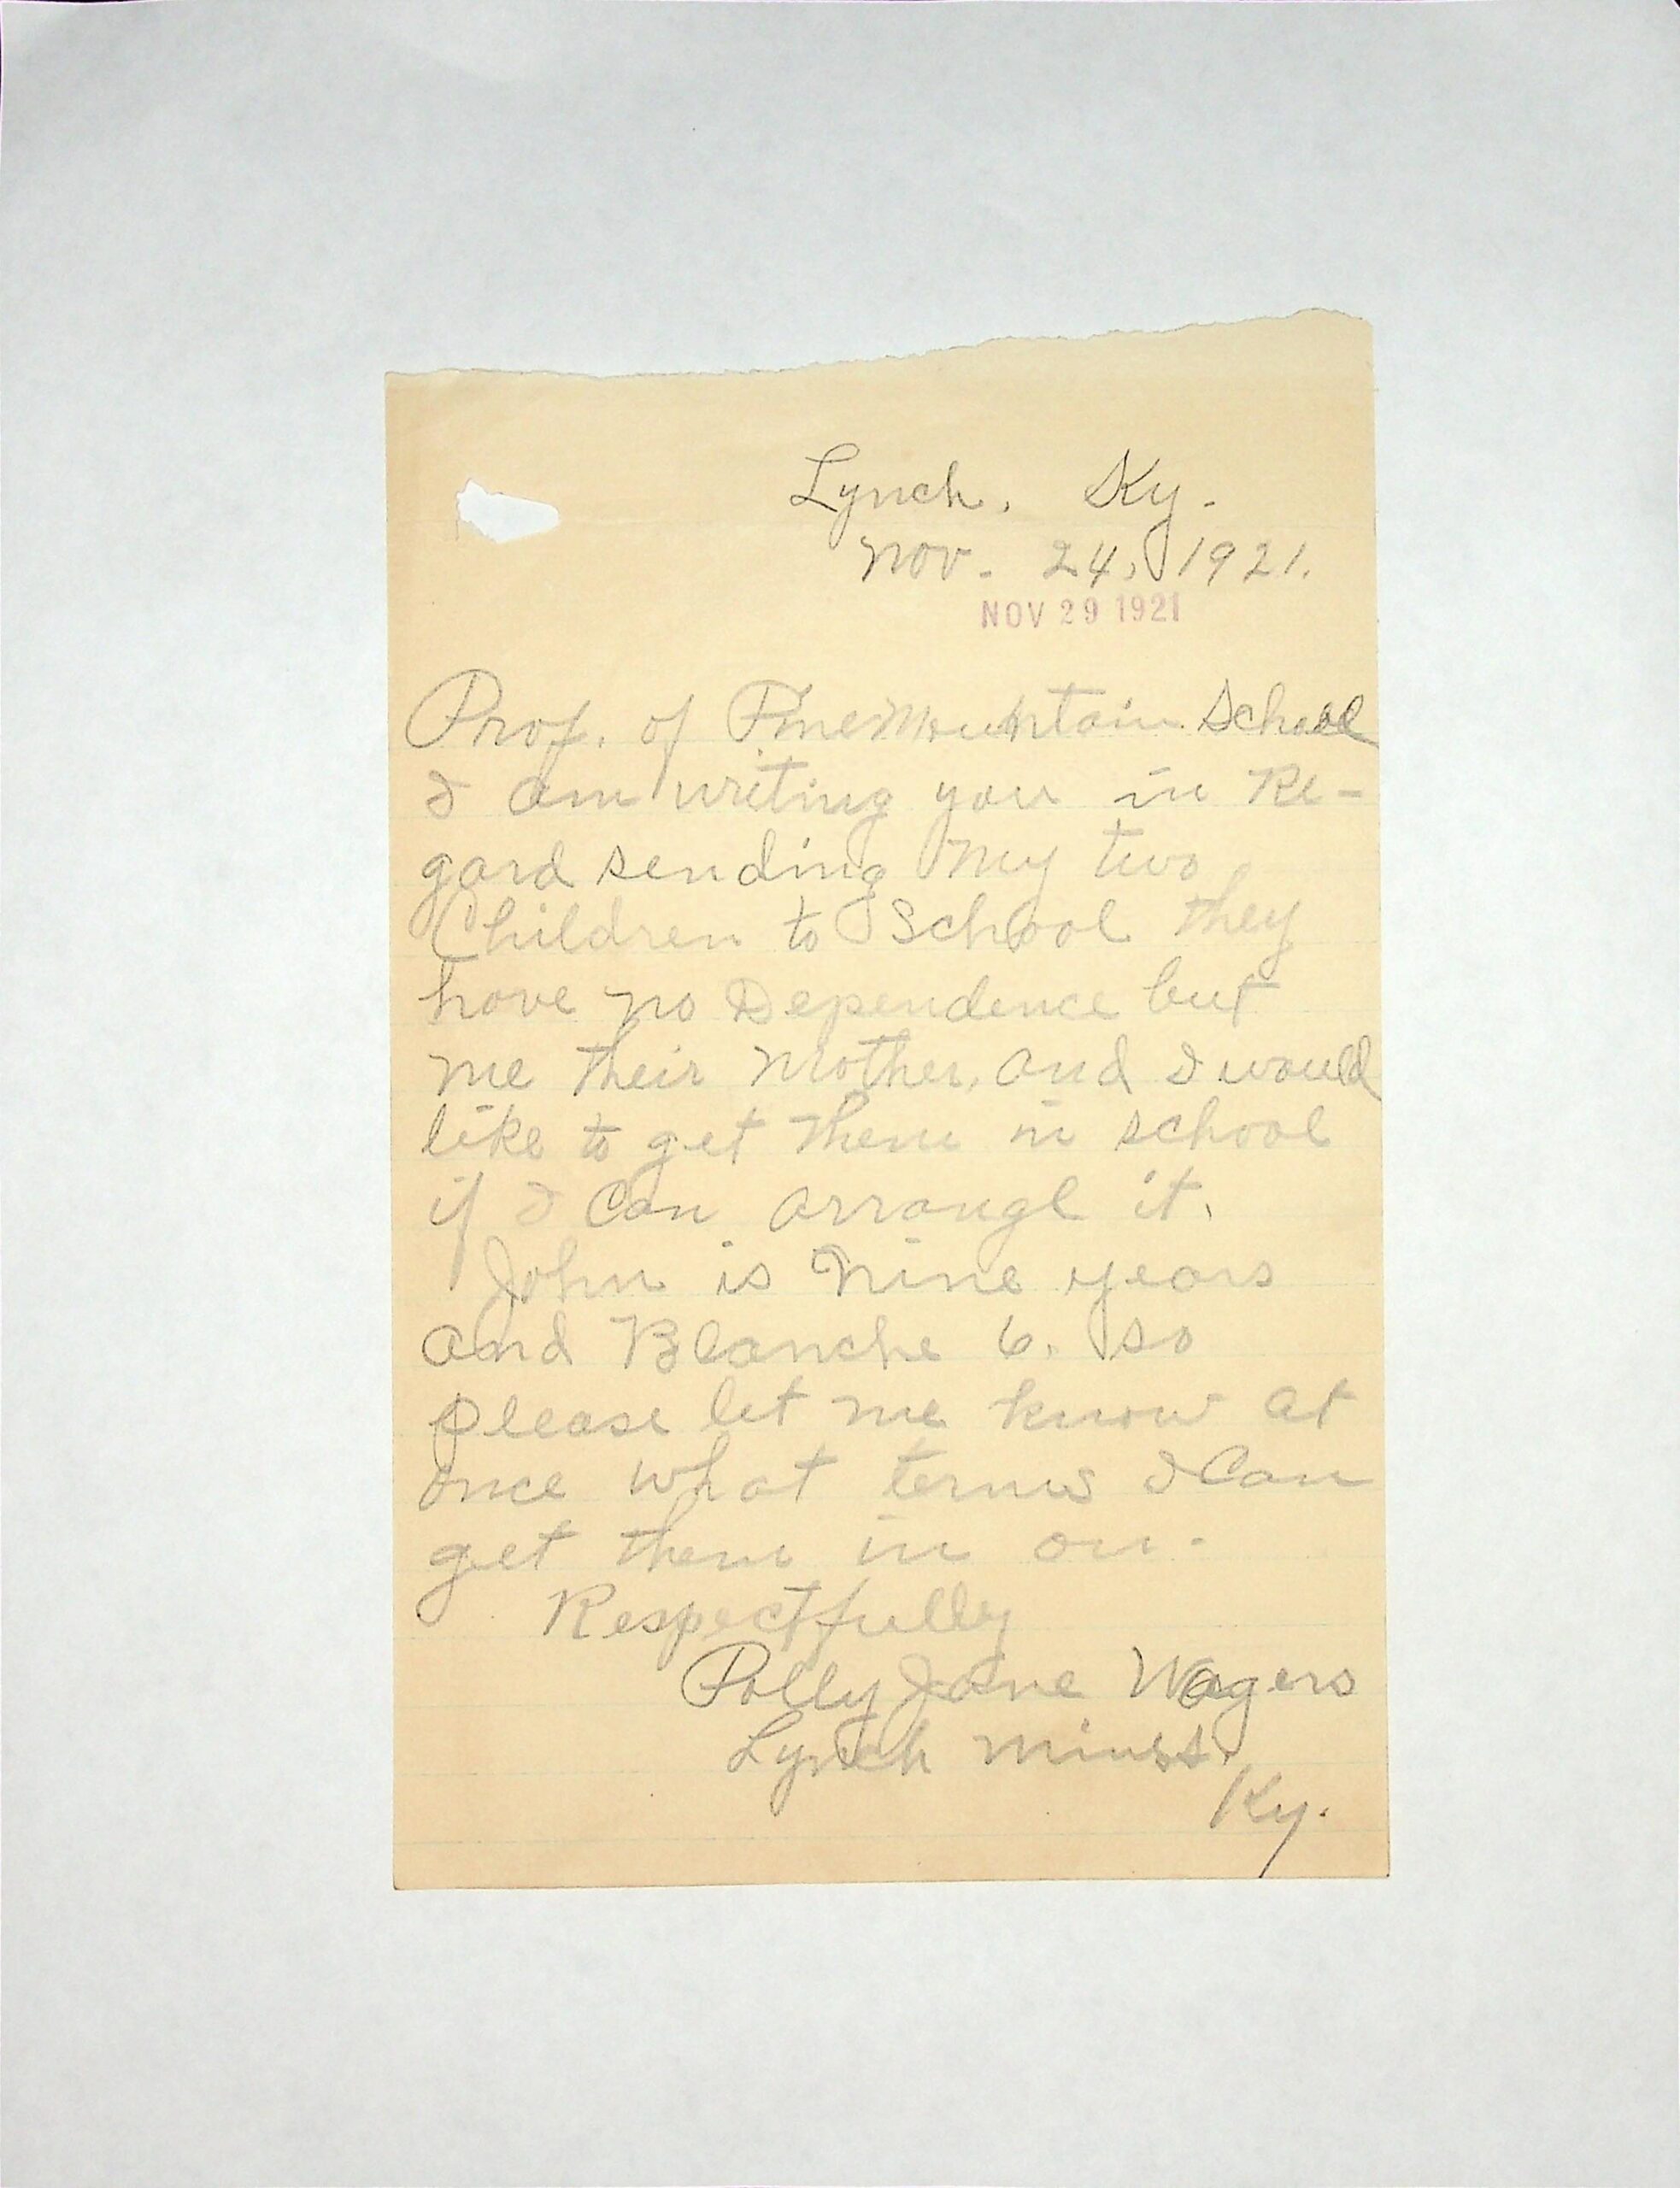 Lynch, Ky.
Nov. 24, 1921.
NOV 29 1921
Prof. of Pine Mountain School
I am writing you in Re-
gard sending My two
Children to School they
have no Dependence but
me their Mother, and I would
like to get them in school
if I Can arrange it.
John is Nine years
and Blanche 6. so
please let me know at
once what terms I Can
get them in on.
Respectfully
Polly Jane Wagers
Lynch Mines,
Ky.